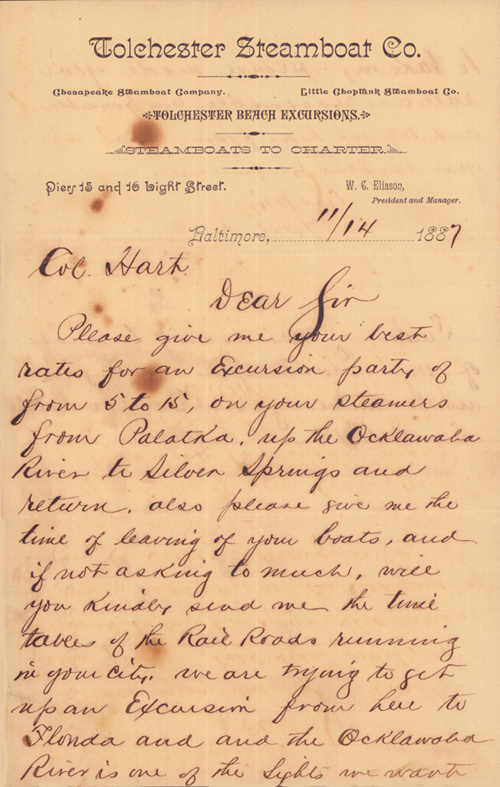 Tolchester Steamboat Co.
Chesapeake Steamboat Company. Little Choptank Steamboat Co.
TOLCHESTER BEACH EXCURSIONS.
STEAMBOATS TO CHARTER.
Piers 15 and 16 Light Street. W. C. Eliason,
President and Manager.
Baltimore, 11/14 1887
Col. Hart
Dear Sir
Please give me your best
rates for an Excursion party of
from 5 to 15, on your steamers
from Palatka, up the Ocklawaha
River to Silver Springs and
return. also please give me the
time of leaving of your boats, and
if not asking to much, will
you kindly send me the time
tables of the Rail Roads running
in your city. we are trying to get
up an Excursion from here to
Florida and and the Ocklawaha
River is one of the Sights we want